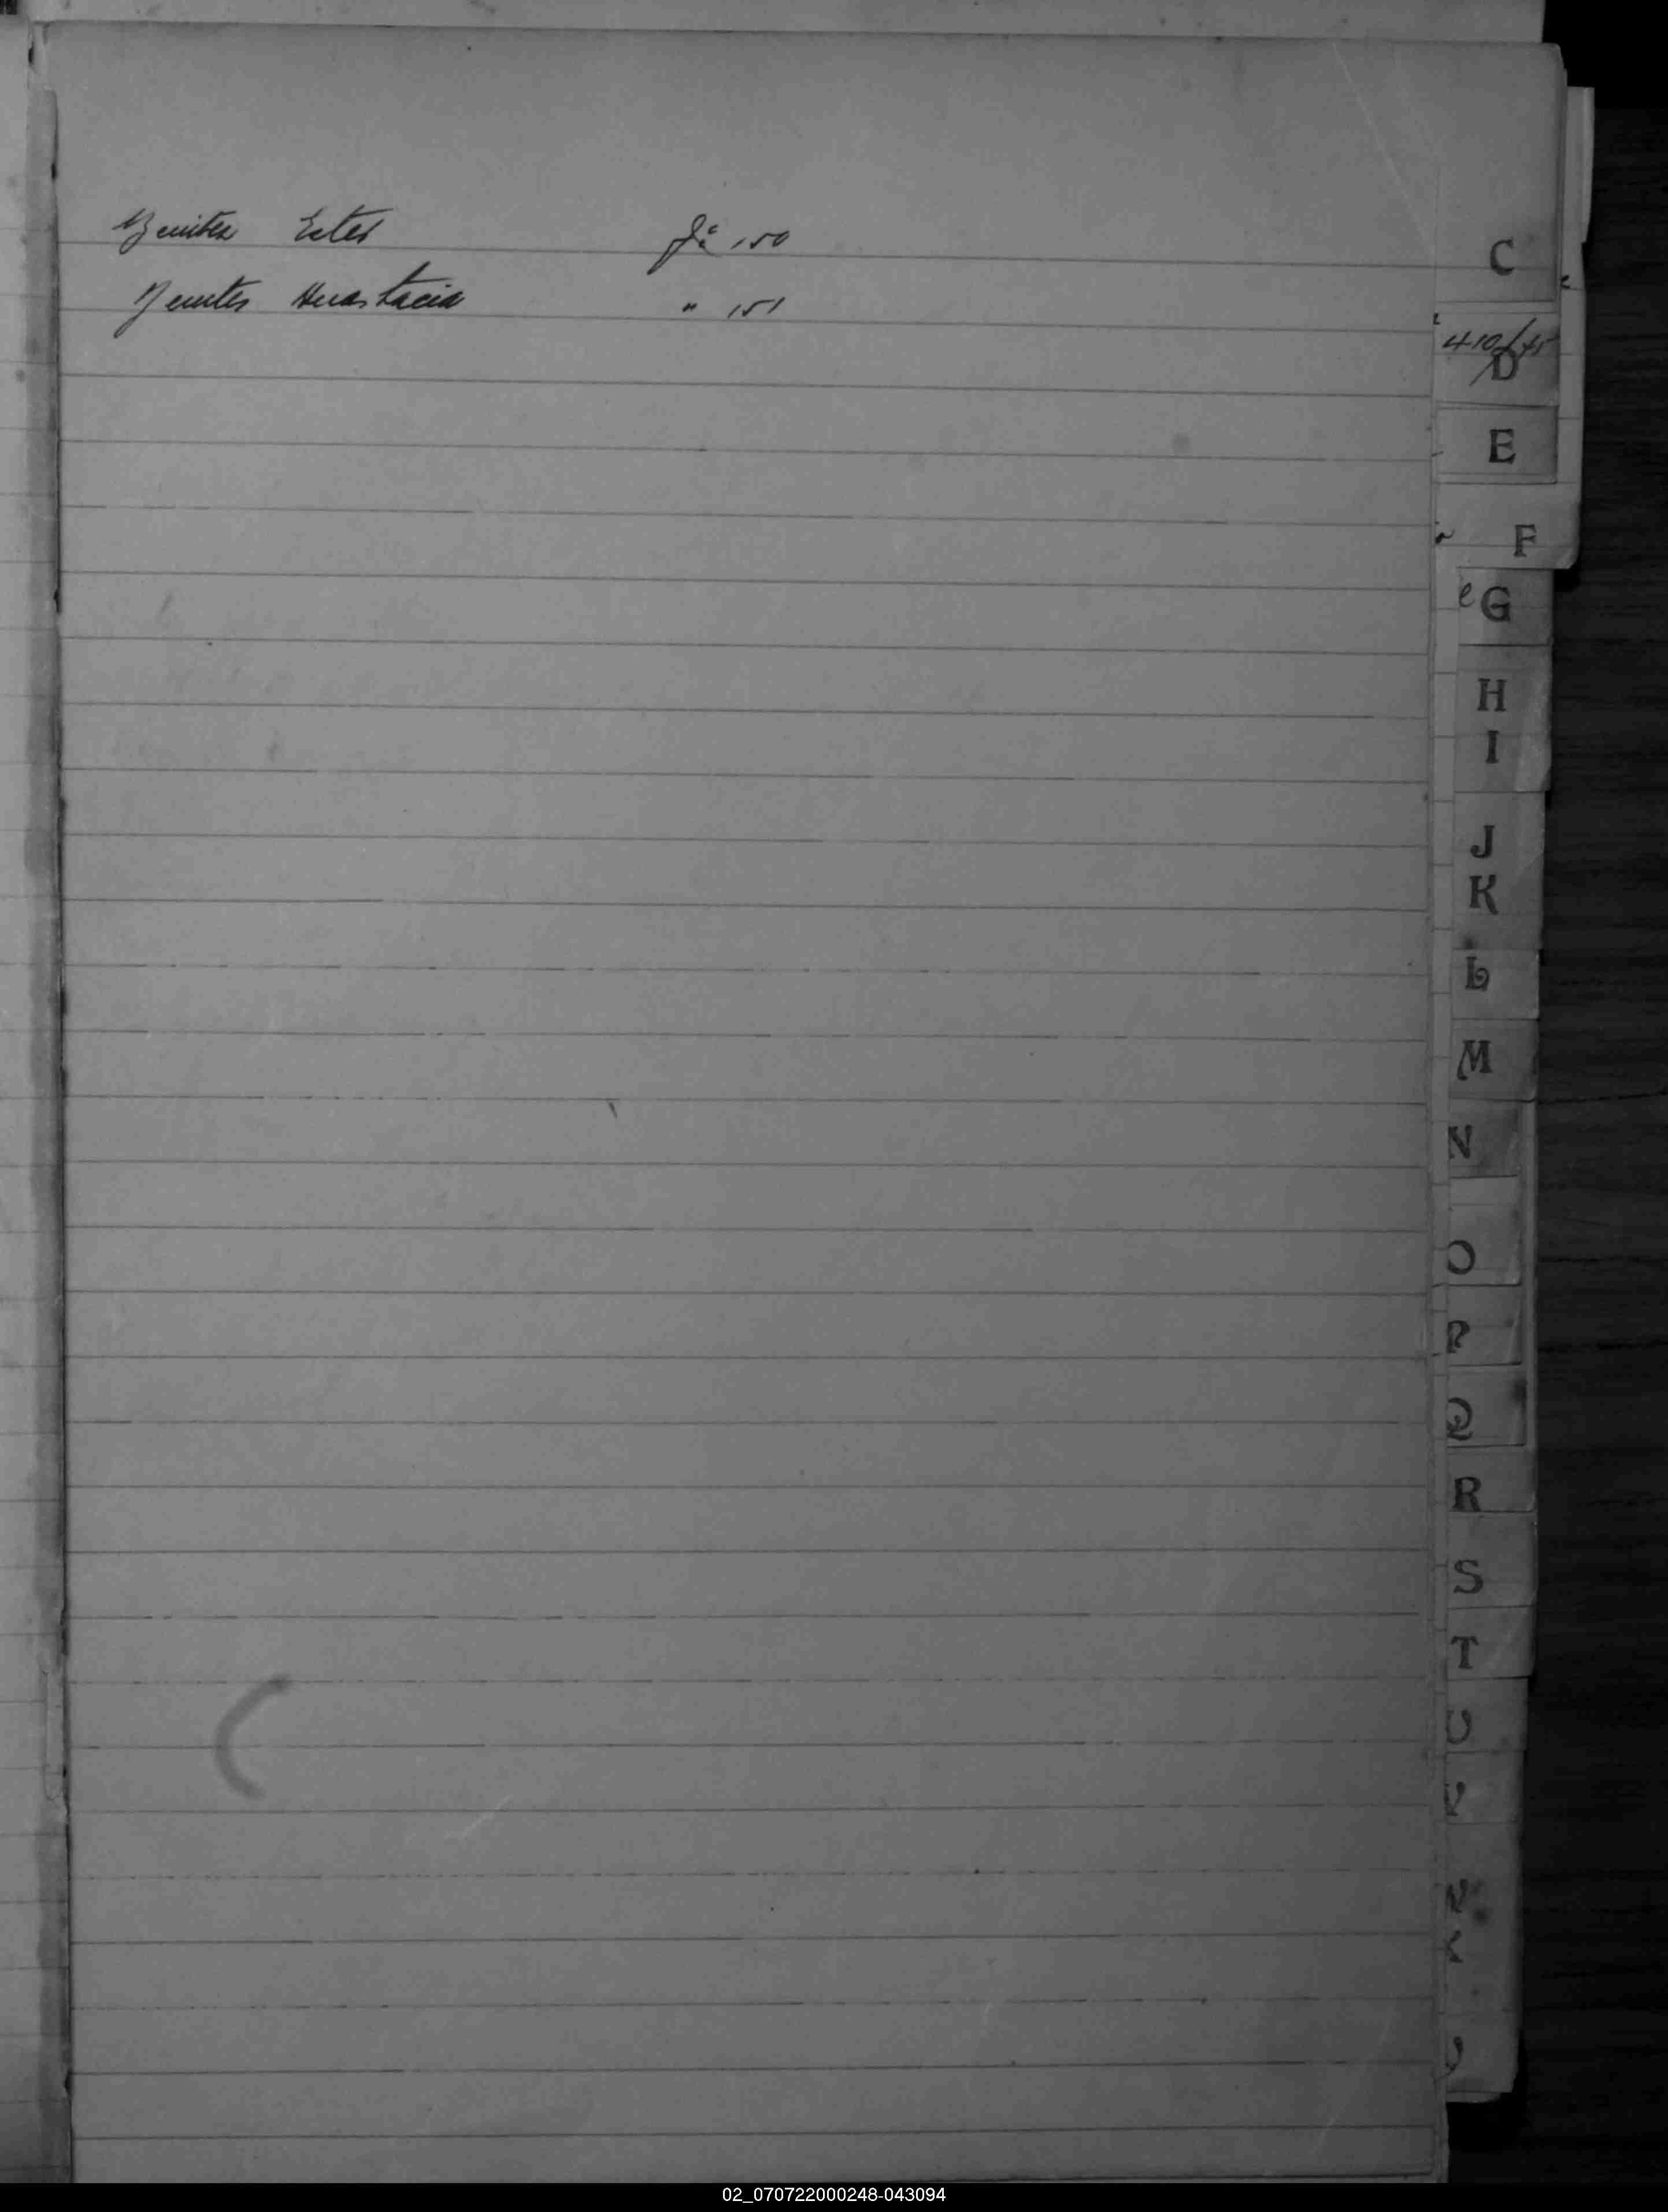 Benitez Ester fo 150
Benites Anastacia " 151
C
410/45
D
E
F
e G
H
I
J
K
L
M
N
O
P
Q
R
S
T
U
V
02_070722000248-043094